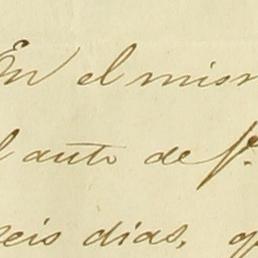 En el mism
auto de
seis dias, q